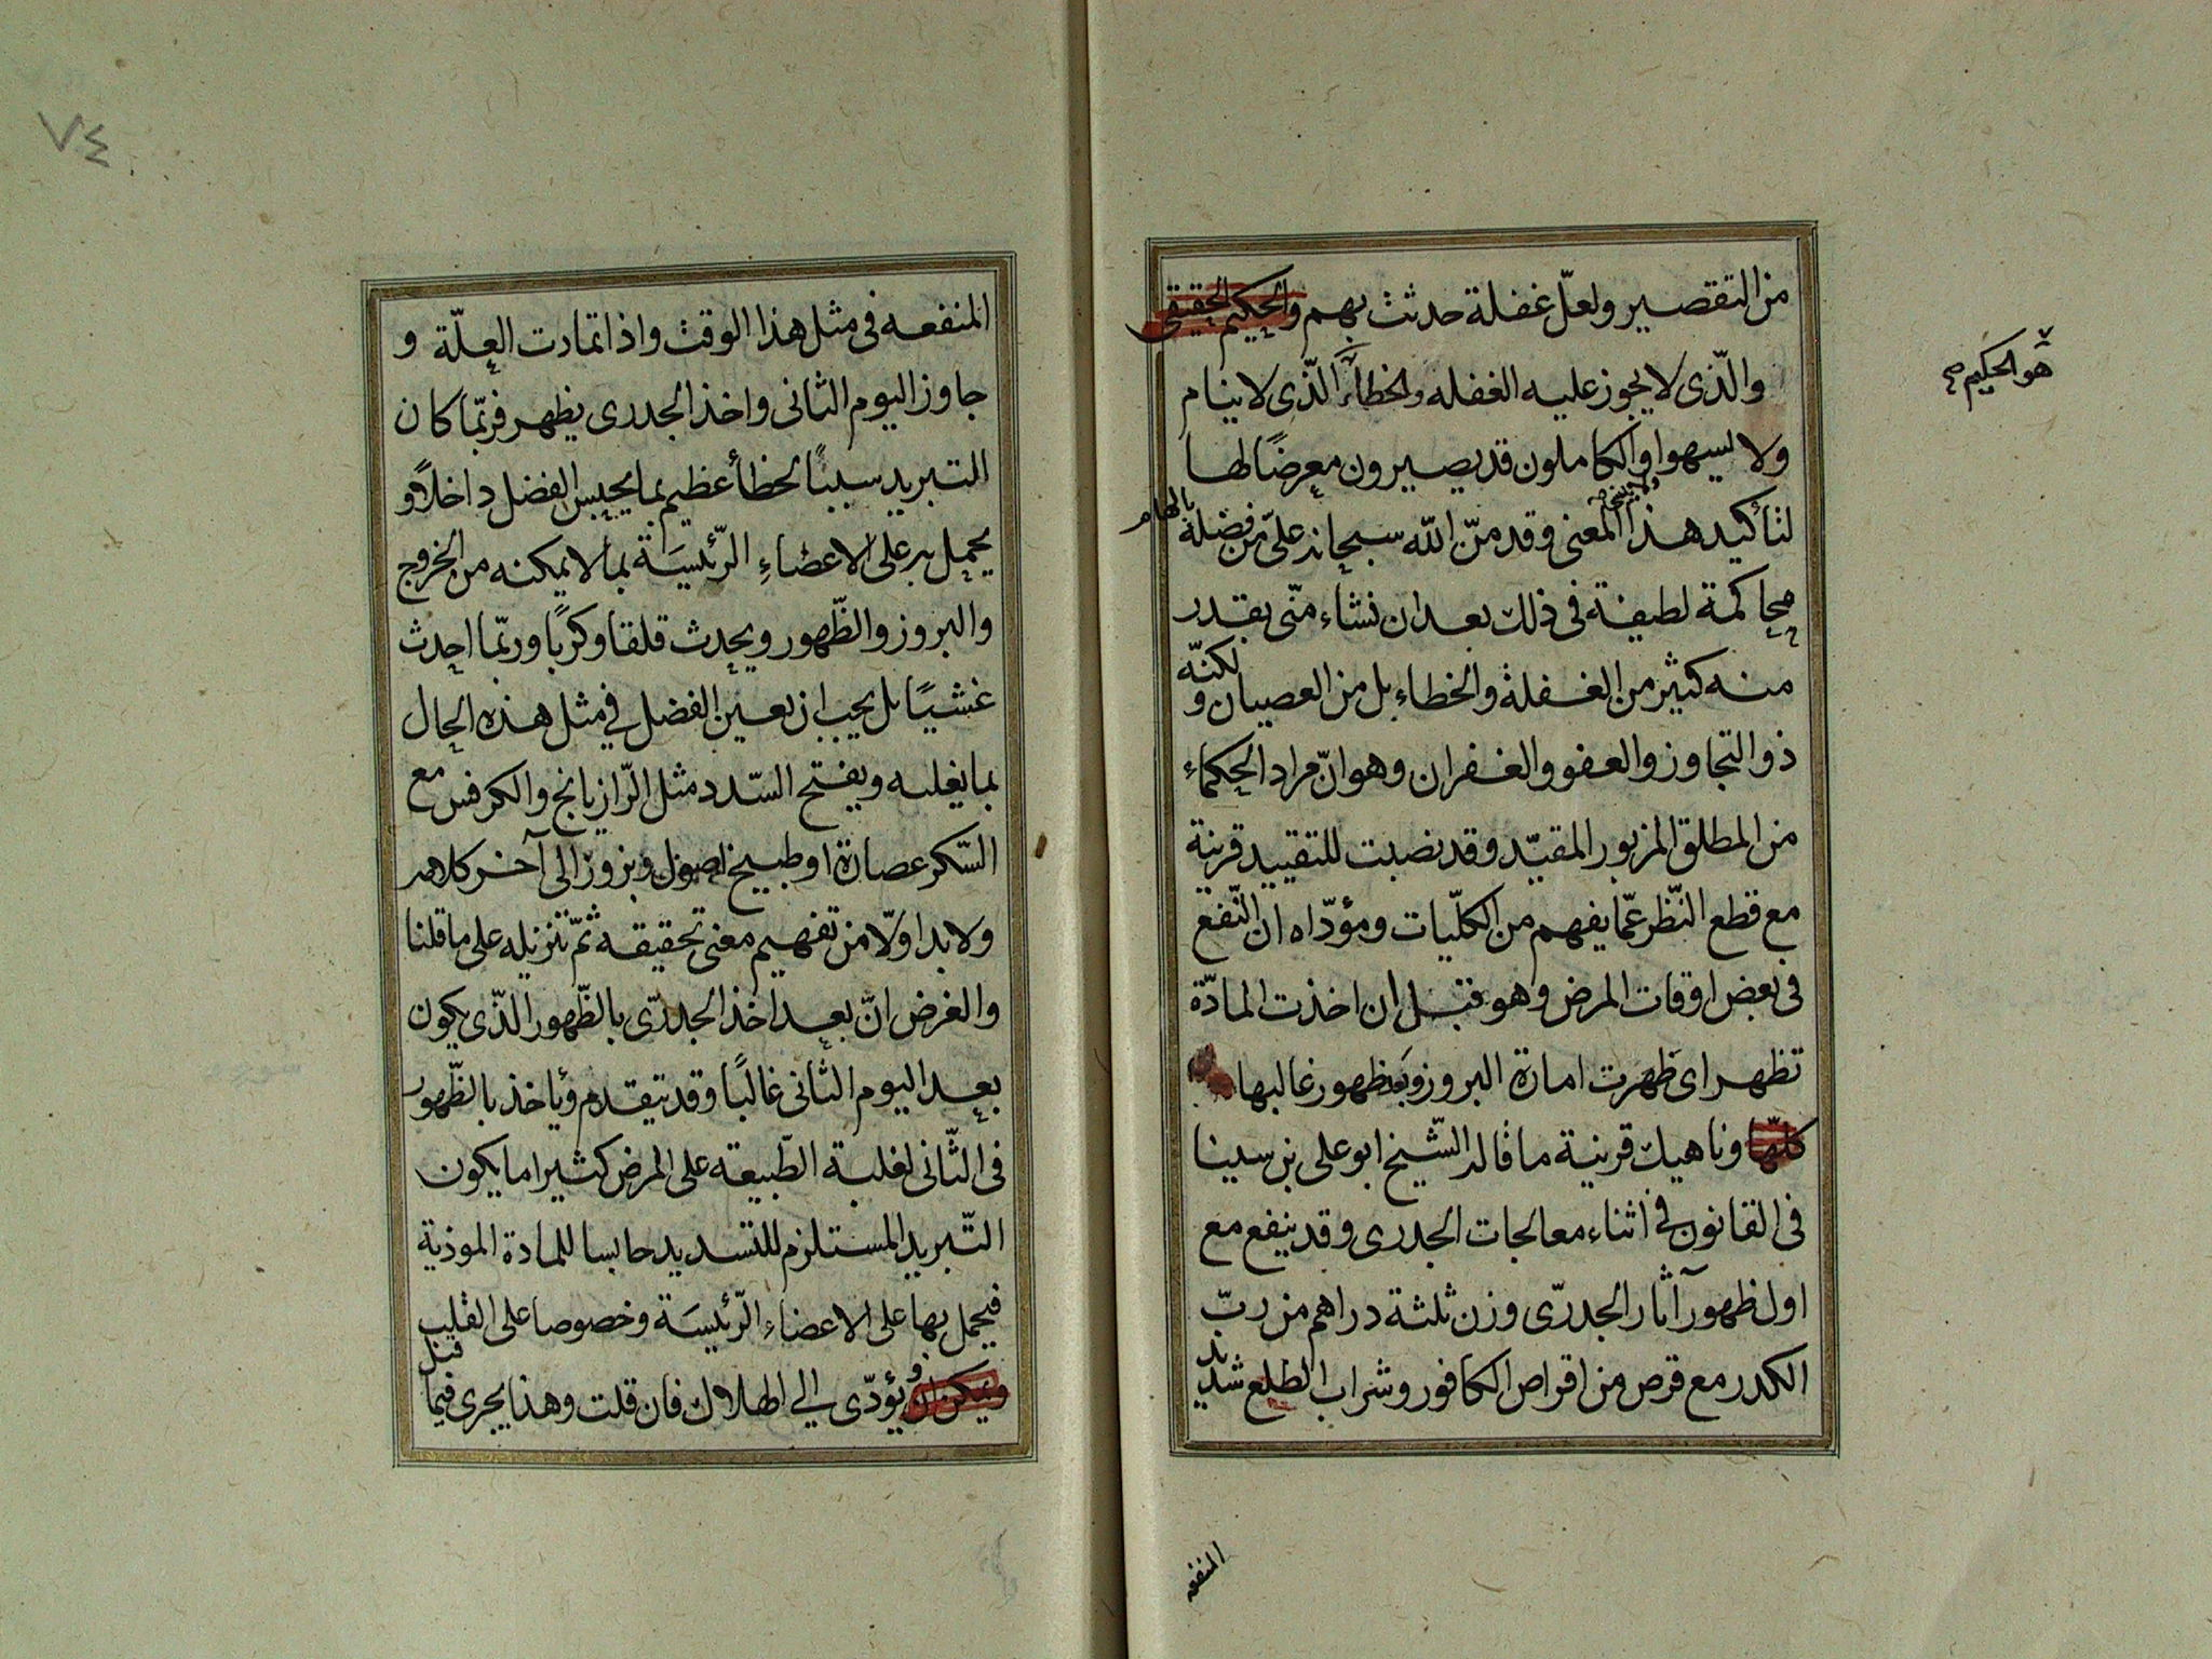 من التقصير ولعلّ غفلة حدثت بهم والحكيم الحقيقى
هو الحكيم صح
والّذى لا يجوز عليه الغفله والخطاء الّذى لا ينام
ولا يسهوا والكاملون قد يصيرون معرضًا لها
لتأكيد هذا المعنى وقد منّ الله سبحانه علىّ من فضله بالهام
محاكمة لطيفة فى ذلك بعد ان نشاء منّى بقدر
منه كثير من الغفلة والخطاء بل من العصيان ولكنّه
ذو التجاوز والعفو والغفران وهو انّ مراد الحكماء
من المطلق المزبور المقيّد وقد نصبت للتقييد قرينة
مع قطع النّظر عمّا يفهم من الكلّيات ومؤدّاه ان النّفع
فى بعض اوقات المرض وهو قبل ان اخذت المادّة
تظهر اى ظهرت امارة البروز وبعد ظهور غالبها
كلّها وناهيك قرينة ما قاله الشّيخ ابو على بن سينا
فى القانون فى اثناء معالجات الجدرى وقد ينفع مع
اول ظهور آثار الجدرّى وزن ثلثة دراهم من ربّ
الكدر مع قرص من اقراص الكافور وشراب الطلع شديد
المنفعه
٧٤
المنفعه فى مثل هذا الوقت واذا تمادت العلّة و
جاوز اليوم الثانى واخذ الجدرى يظهر فربّما كان
التبريد سببًا لخطأ عظيم بما يحبس الفضل داخلاً و
يحمل به على الاعضاءِ الرّئيسَة بما لا يمكنه من الخروج
والبروز والظّهور ويحدث قلقا وكربًا وربّما احدث
غشيًا بل يجب ان يعين الفضل فى مثل هذه الحال
بما يغليه ويفتح السّدد مثل الرّازيانج والكرفس مع
السّكر عصارة او طبيخ اصول وبزور الى آخر كلامه
ولا بد اوّلا من تفهيم معنى تحقيقه ثمّ تنزيله على ما قلنا
والغرض انّ بعد اخذ الجدرّى بالظّهور الّذى يكون
بعد اليوم الثانى غالبًا وقد يتقدم ويأخذ بالظّهور
فى الثّانى لغلبة الطّبيعته على المرض كثيرا ما يكون
التّبريد المستلزم للتسديد حابسا للمادة الموذية
فيحمل بها على الاعضاءِ الرّئيسَة وخصوصا على القلب
ويمكن ان ويؤدّى الى الهلاك فان قلت وهذا يجرى فيما قبل